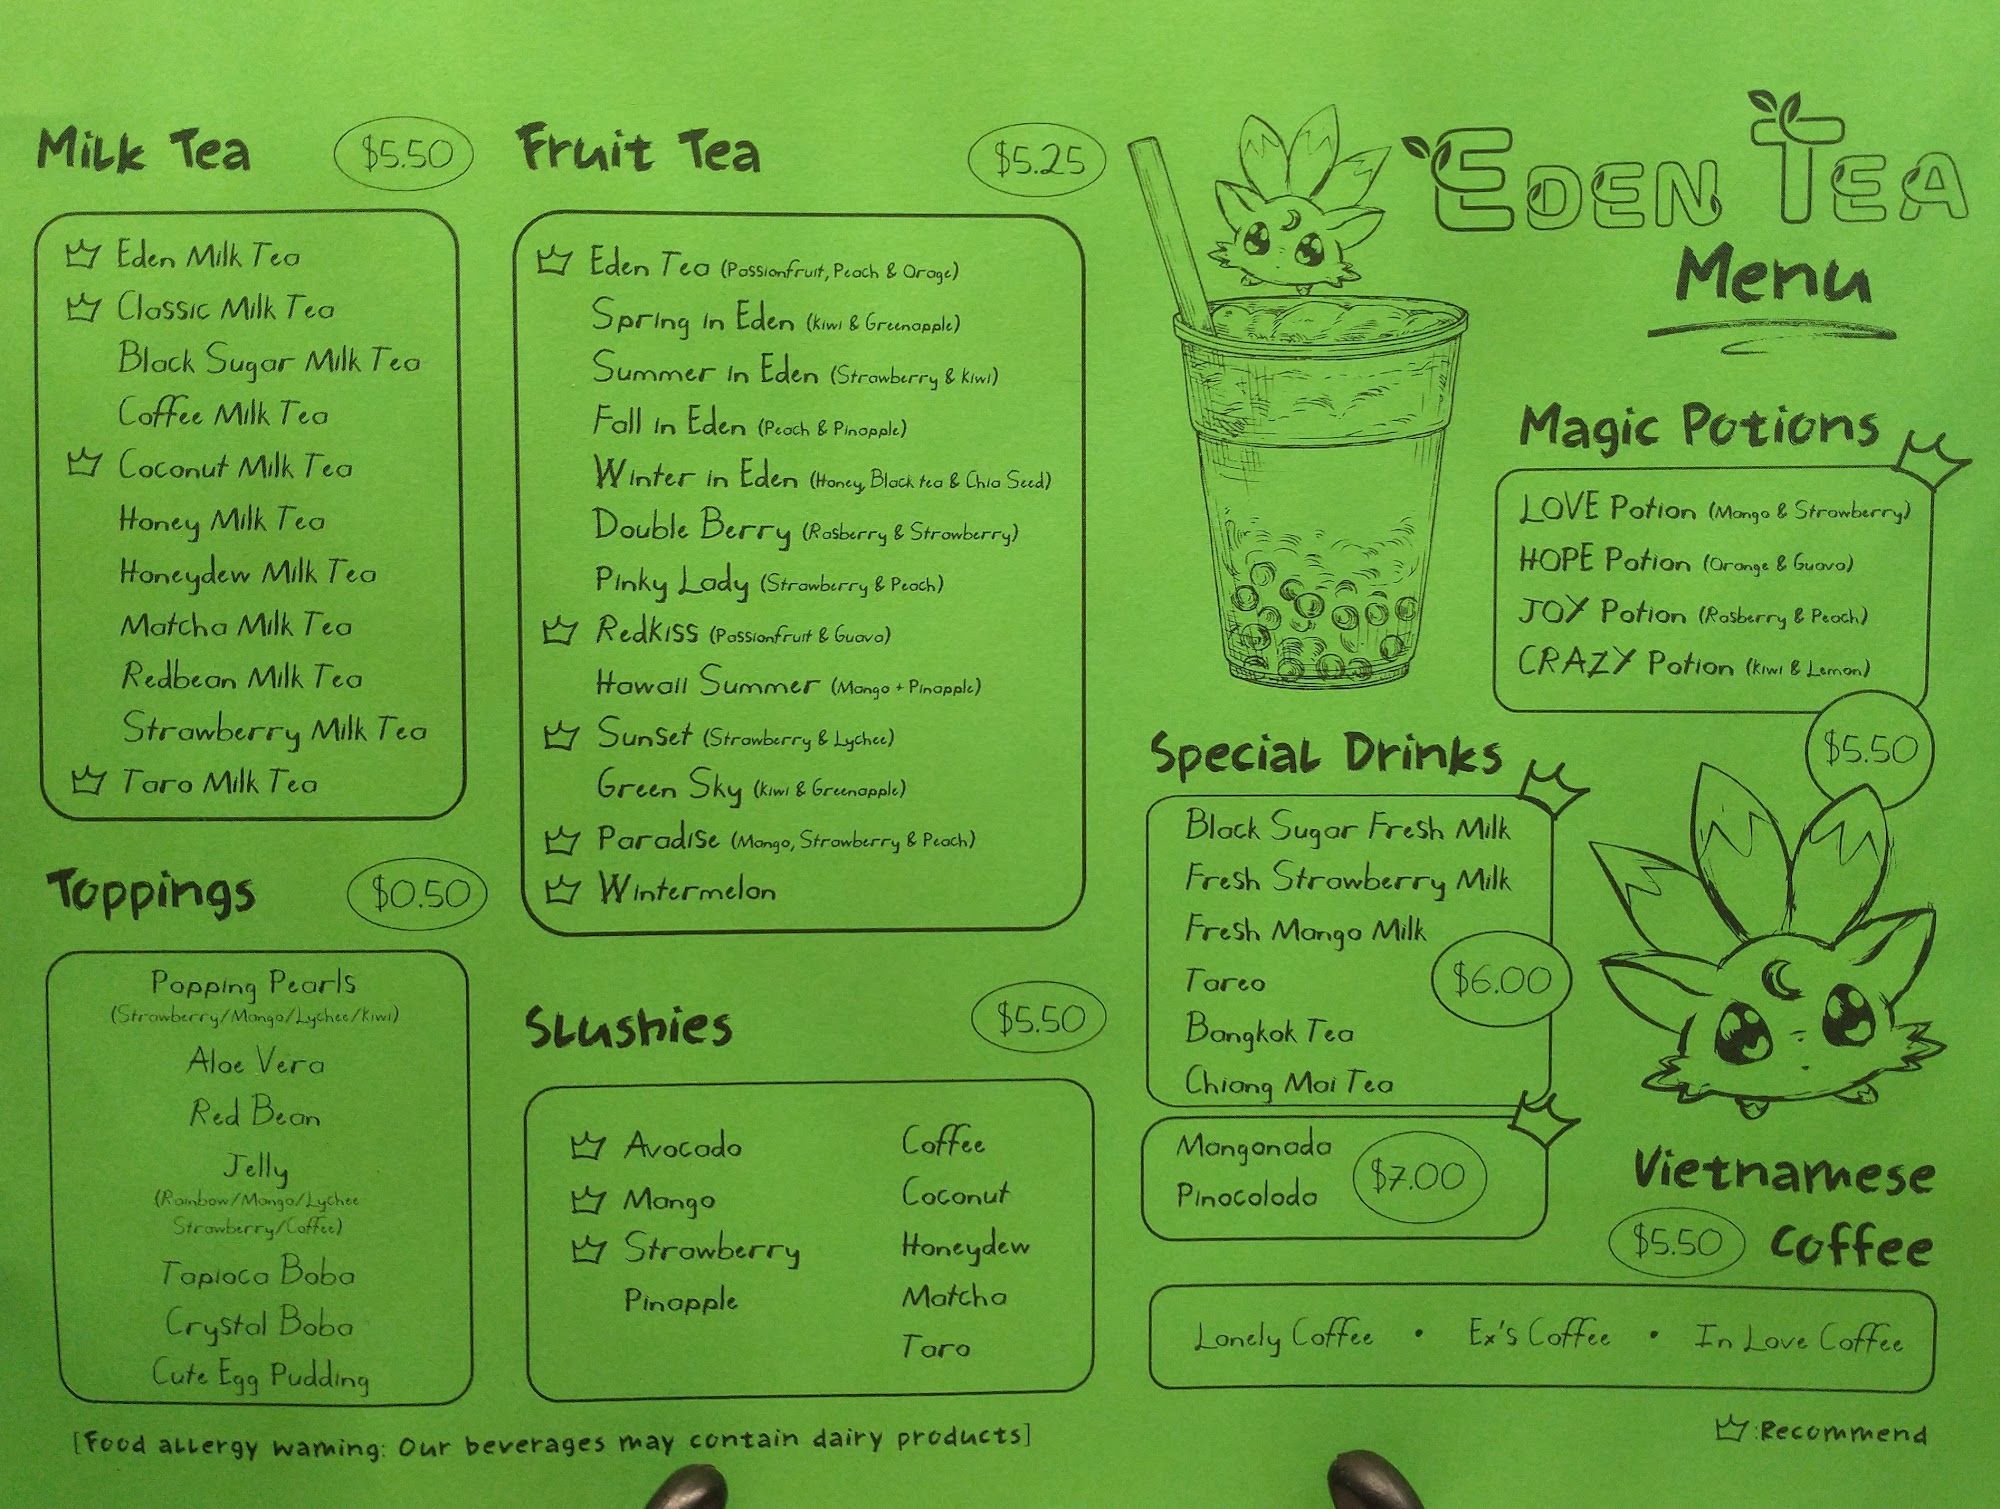 Milk Tea $5.50
Eden Milk Tea
Classic Milk Tea
Black Sugar Milk Tea
Coffee Milk Tea
Coconut Milk Tea
Honey Milk Tea
Honeydew Milk Tea
Matcha Milk Tea
Redbean Milk Tea
Strawberry Milk Tea
Taro Milk Tea
Toppings $0.50
Popping Pearls
(Strawberry/Mango/Lychee/Kiwi)
Aloe Vera
Red Bean
Jelly
(Rainbow/Mango/Lychee
Strawberry/Coffee)
Tapioca Boba
Crystal Boba
Cute Egg Pudding
Fruit Tea $5.25
Eden Tea (Passionfruit, Peach & Orage)
Spring in Eden (Kiwi & Greenapple)
Summer in Eden (Strawberry & Kiwi)
Fall in Eden (Peach & Pinapple)
Winter in Eden (Honey, Black tea & Chia Seed)
Double Berry (Rasberry & Strawberry)
Pinky Lady (Strawberry & Peach)
Redkiss (Passionfruit & Guava)
Hawaii Summer (Mango + Pinapple)
Sunset (Strawberry & Lychee)
Green Sky (Kiwi & Greenapple)
Paradise (Mango, Strawberry & Peach)
Wintermelon
Slushies $5.50
Avocado
Mango
Strawberry
Pinapple
Coffee
Coconut
Honeydew
Matcha
Taro
[Food allergy warning: Our beverages may contain dairy products]
Eden Tea
Menu
Magic Potions
LOVE Potion (Mango & Strawberry)
HOPE Potion (Orange & Guava)
JOY Potion (Rasberry & Peach)
CRAZY Potion (Kiwi & Lemon)
$5.50
Special Drinks
Black Sugar Fresh Milk
Fresh Strawberry Milk
Fresh Mango Milk
Tareo
Bangkok Tea
Chiang Mai Tea
$6.00
Mangonada
Pinocolada
$7.00
Vietnamese
$5.50 Coffee
Lonely Coffee • Ex's Coffee • In Love Coffee
:Recommend